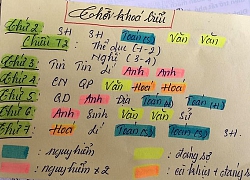 Thời khoá biểu
Thứ 2 SH SH Toán(s) Văn Văn
Chiều T2 Thể dục (1-2)
Nghề (3-4)
Thứ 3 Tin Tin Lí Anh Anh
Thứ 4 CN QP Văn Hoá Hoá
Thứ 5 QD Anh Địa Toán Toán
Thứ 6 Anh Sinh Văn Văn Sử
Thứ 7 Hoá Lí Toán SH
: nguy hiểm : đáng sợ
: nguy hiểm x 2